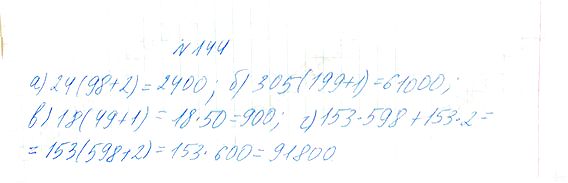 № 144
а) 24(98+2) = 2400; б) 305(199+1) = 61000;
в) 18(49+1) = 18·50 = 900; г) 153·598 + 153·2 =
= 153(598+2) = 153·600 = 91800